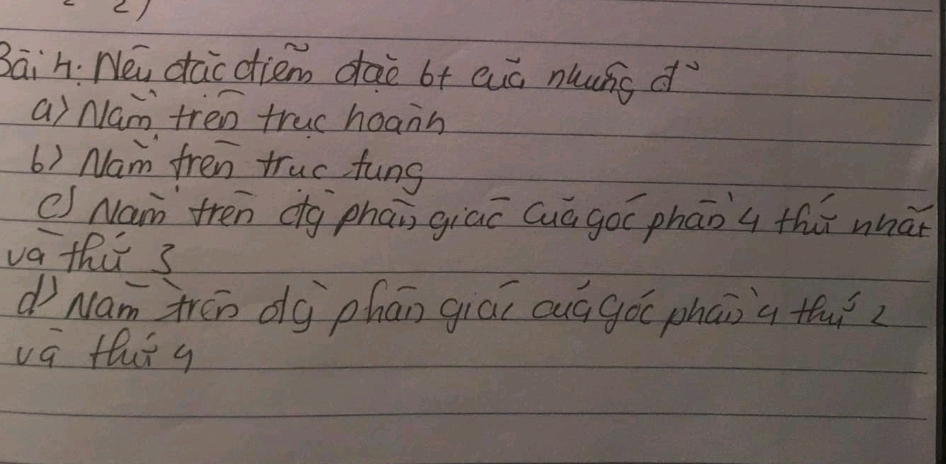 2)
Bài 4: Nêu đặc điểm đặc bt của những đ'
a) Nằm trên trục hoành
b) Nằm trên trục tung
c) Nằm trên đg phân giác của góc phần 4 thứ nhất
và thứ 3
d) Nằm trên đg phân giác của góc phần 4 thứ 2
và thứ 4